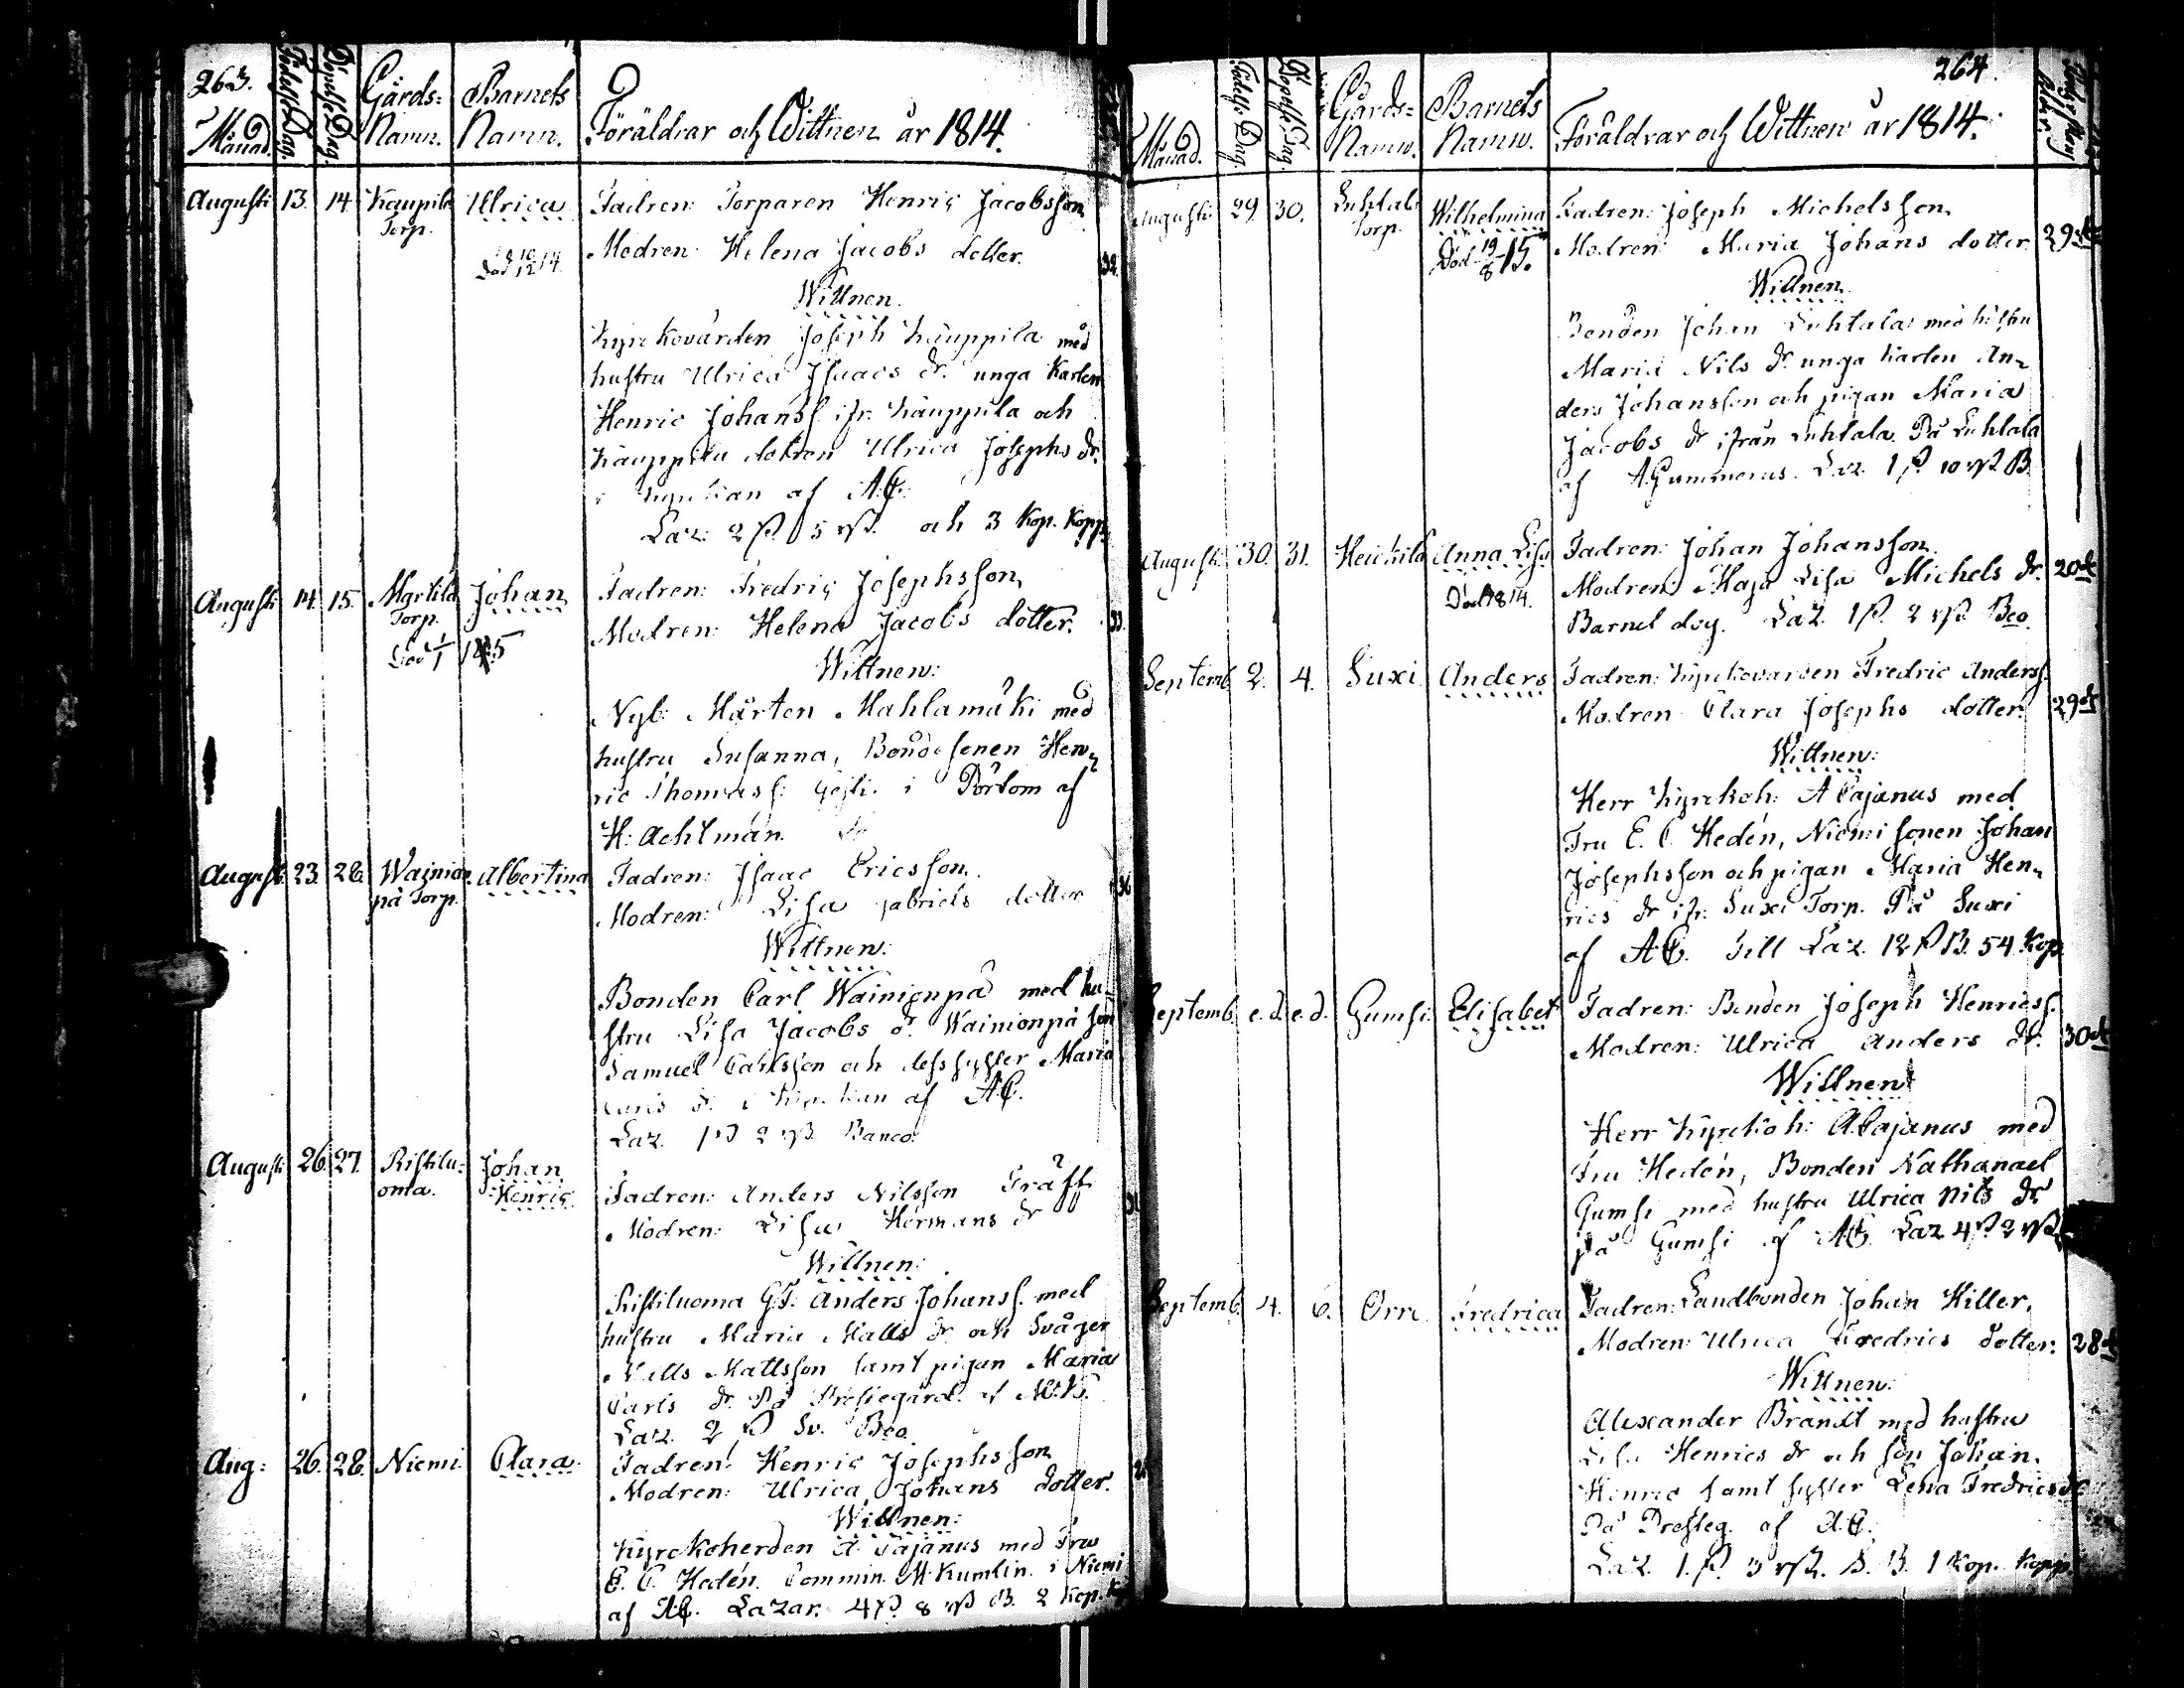 263.
Månad.
Födelse Dag.
Döpelse Dag.
Gårds=
Namn.
Barnets
Namn.
Föräldrar och Wittnen år 1814.
Augusti 13. 14. Kauppila Ulrica
Torp.
Död 10/12 14.
Fadren: Torparen Henric Jacobsson
Modren: Helena Jacobs dotter.
Wittnen.
Kyrckovärden Joseph Kauppila med
hustru Ulrica Isaacs dr. unga Karlen
Henric Johanss. ifr. Kauppila och
Kauppila dotren Ulrica Josephs dr.
i Kyrckan af A.C.
Laz: 2 ß 5 rß. och 3 Kop. Kopp.
Augusti 14. 15. Myrtila Johan
Torp.
Död 1/1 1815
Fadren: Fredric Josephsson
Modren: Helena Jacobs dotter. 33.
Wittnen:
Nyb: Mårten Mahlamäki med
hustru Susanna, Bondesonen Hen=
ric Thomass: i Pörtom af
H: Achlman.
August: 23. 26. Wainion= Albertina
pä Torp.
Fadren: Isaac Ericsson.
Modren: Lisa Gabriels dotter 36
Wittnen:
Bonden Carl Wainionpä med hu=
stru Lisa Jacobs d. Wainionpä son
Samuel Carlsson och dess syster Maria
Carls dr. i Kyrckan af A.C.
Laz. 1 ß 2 rß Banco.
Augusti 26. 27. Ristilu= Johan
oma. Henric
Fadren: Anders Nilsson Gräff
Modren: Lisa Hermans dr
Wittnen:
Ristiluoma GF. Anders Johanss. med
hustru Maria Matts dr och Svåger
Matts Mattsson samt pigan Maria
Carls dr. På Prestegård. af M.K.
Laz. 2 ß Sv. Bco.
Aug: 26. 28. Niemi Clara
Fadren: Henric Josephsson
Modren: Ulrica Johans dotter.
Wittnen:
Kyrckoherden A. Cajanus med Fru
E. C. Hedén. Commin. M. Kumlin. i Niemi
af A.C. Lazar. 4 ß 8 rß B. 2 Kop. K.
264.
Månad.
Födelse Dag.
Döpelse Dag.
Gårds=
Namn.
Barnets
Namn.
Föräldrar och Wittnen år 1814.
Augusti 29. 30. Luhtala Wilhelmina
Torp.
Död 19/8 15.
Fadren: Joseph Michelsson
Modren: Maria Johans dotter. 29
Wittnen.
Bonden Johan Luhtala med hustru
Maria Nils dr. unga karlen An=
ders Johansson och pigan Maria
Jacobs dr ifrån Luhtala. På Luhtala
af A. Gummerus. Laz. 1 ß 10 rß B.
Augusti 30. 31. Heickilä Anna Lisa
Död 1814.
Fadren: Johan Johansson
Modren: Maja Lisa Michels dr. 20
Barnet dog. Laz. 1 ß. 2 rß Bco.
Septemb. 2. 4. Luxi Anders
Fadren: Kyrckovärden Fredric Anderss.
Modren Clara Josephs dotter. 29
Wittnen:
Herr Kyrckoh: A Cajanus med
Fru E. C. Hedén, Niemi sonen Johan
Josephsson och pigan Maria Hen=
rics dr ifr. Luxi Torp. På Luxi
af A.C. Till Laz. 12 ß B. 54 Kop.
Septemb. e.d. e.d. Gumsi Elisabet
Fadren: Bonden Joseph Henricss.
Modren: Ulrica Anders dr. 30
Wittnen
Herr Kyrckoh: A. Cajanus med
Fru Hedén, Bonden Nathanael
Gumsi med hustru Ulrica Nils dr
på Gumsi af A.C. Laz 4 ß 2 rß
Septemb. 4. 6. Orre Fredrica
Fadren: Landbonden Johan Hiller.
Modren: Ulrica Fredrics dotter: 28
Wittnen:
Alexander Brandt med hustru
Lisa Henrics dr och son Johan
Henric samt syster Lena Fredrics dr
På Presteg. af A.C.
Laz. 1. ß. 3 rß. S. B. 1 Kop. Kopp.